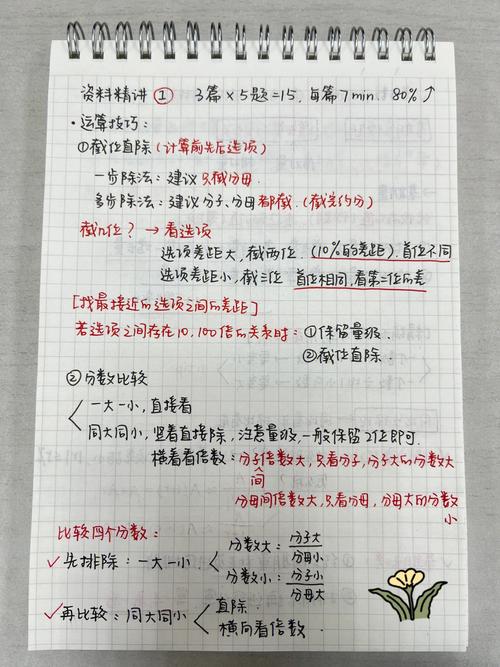 资料精讲① 3篇×5题=15,每篇7min. 80%↑
·运算技巧:
①截位直除(计算前先后选项)
一步除法:建议只截分母.
多步除法:建议分子、分母都截.(截完约分)
截几位?→看选项
选项差距大,截两位.(10%的差距).首位不同
选项差距小,截三位 首位相同,看第二位的差
[找最接近的选项之间的差距]
若选项之间存在10,100倍的关系时:①保留量级.
②截位直除.
②分数比较
一大一小,直接看
同大同小,竖着直接除,注意量级,一般保留2位即可.
横着看倍数:分子间倍数大,只看分子,分子大的分数大
分母间倍数大,只看分母,分母大的分数小
比较四个分数:
✓先排除:一大一小.
分数大:分子大/分母小
分数小:分子小/分母大
✓再比较:同大同小
直除.
横向看倍数.